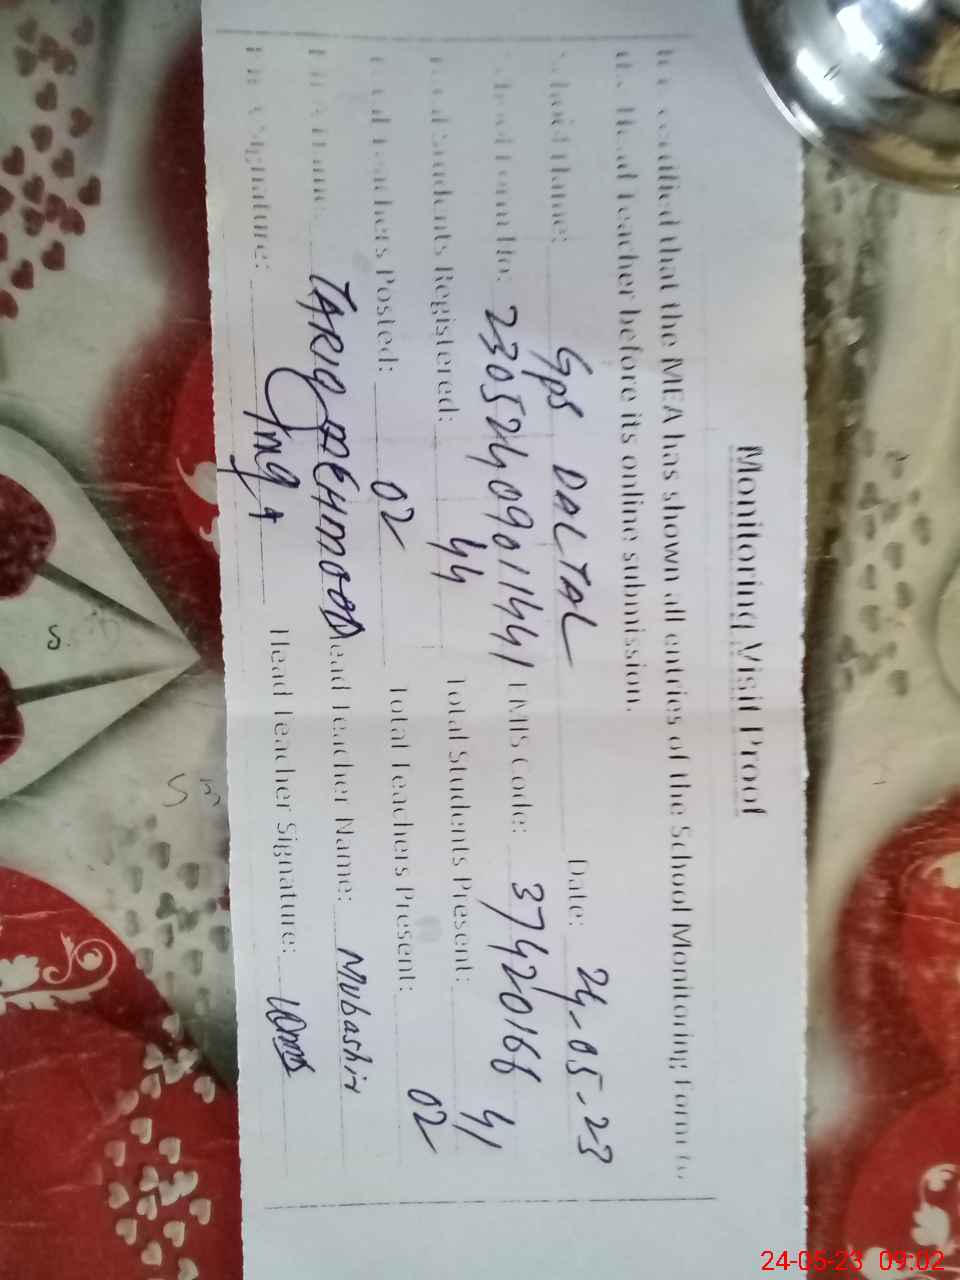 Monitoring Visit Proof
certified that the MEA has shown all entries of the School Monitoring Form to
the Head Teacher before its online submission.
School Name: GPS DALTAL Date: 24-05-23
School Form No: 23052409011441 EMIS Code: 37420166
Total Students Registered: 44 Total Students Present: 41
Total Teachers Posted: 02 Total Teachers Present: 02
MEA Name: TARIQ MEHMOOD Head Teacher Name: Mubashir
MEA Signature: Head Teacher Signature:
24-05-23 09:02